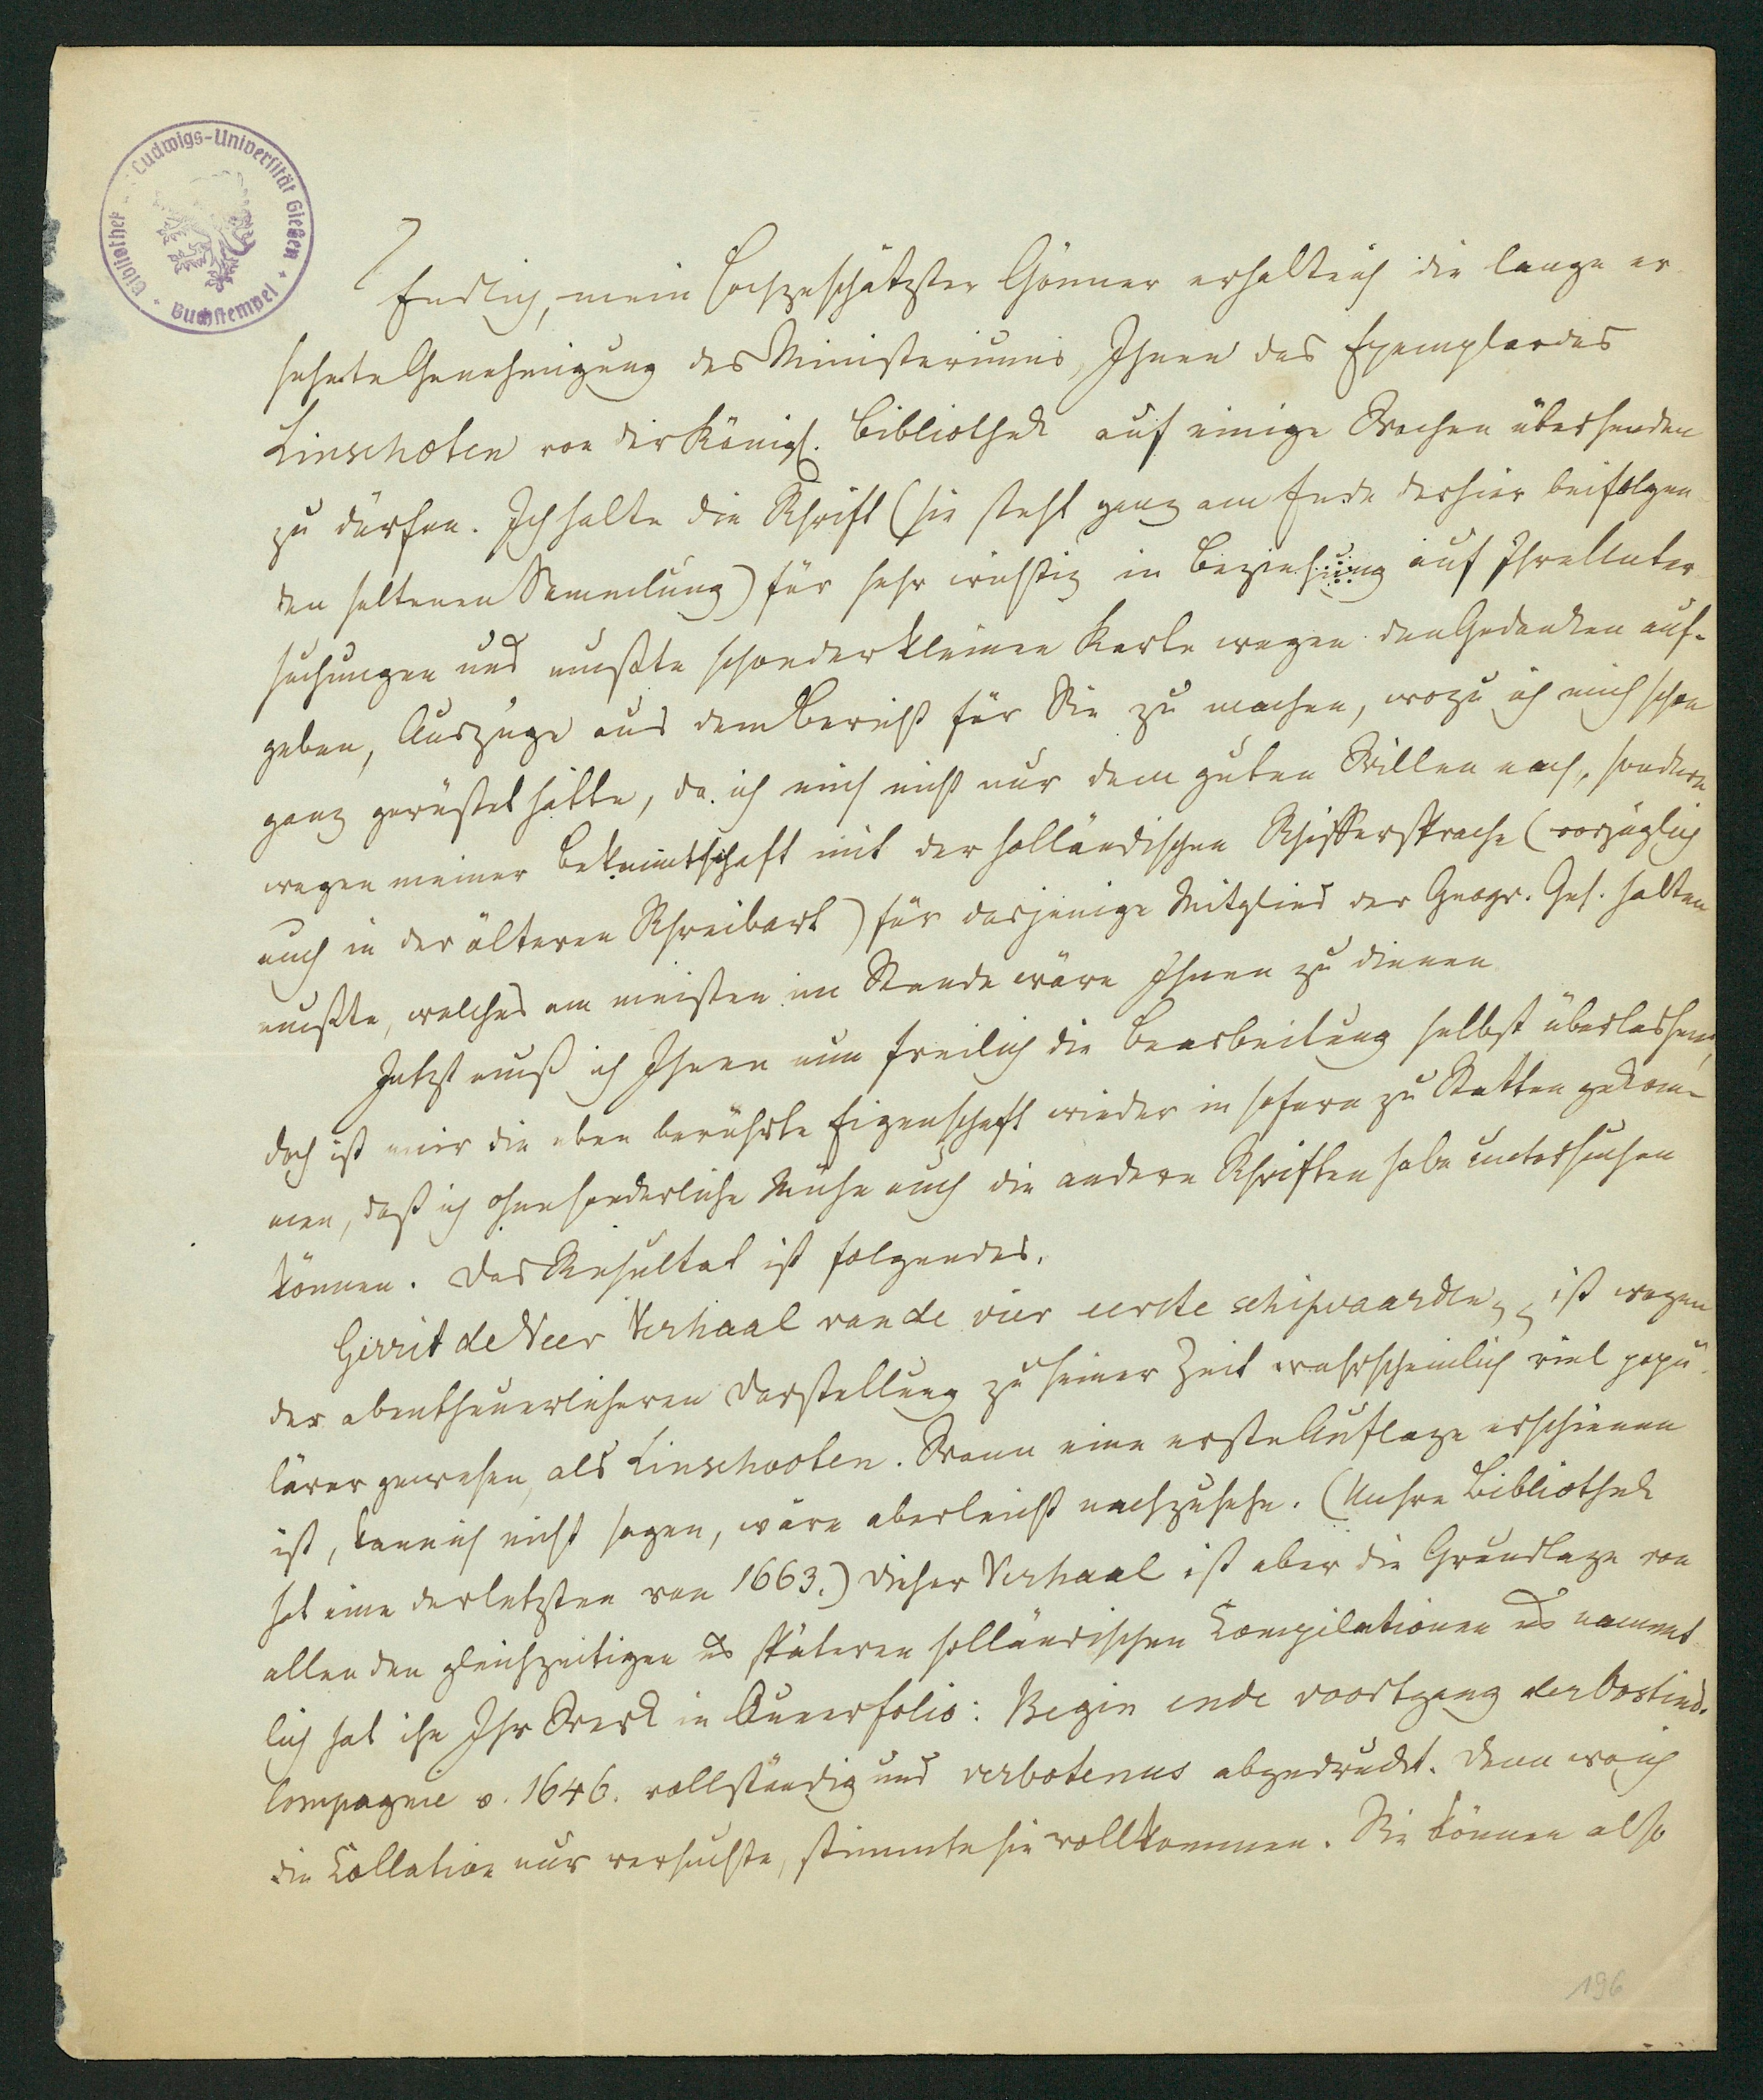 Bibliothek Ludwigs-Universität Gießen
Buchstempel
Endlich, mein hochgeschätzter Gönner erhalte ich die lange er
sehnte Genehmigung des Ministeriums, Ihnen das Exemplar des
Linschoten von der Königl. Bibliothek auf einige Wochen übersenden
zu dürfen. Ich halte die Schrift (sie steht ganz am Ende der hier beifolgen
den seltenen Sammlung) für sehr wichtig in Beziehung auf Ihre Unter
suchungen und mußte schon der kleinen Karte wegen den Gedanken auf-
geben, Auszüge aus dem Bericht für Sie zu machen, wozu ich mich schon
ganz gerüstet hatte, da ich mich nicht nur dem guten Willen nach, sondern
wegen meiner Bekanntschaft mit der holländischen Schiffersprache (vorzüglich
auch in der älteren Schreibart) für dasjenige Mitglied der Geogr. Ges. halten
mußte, welches am meisten im Stande wäre Ihnen zu dienen
Jetzt muß ich Ihnen nun freilich die Bearbeitung selbst überlassen,
doch ist mir die eben berührte Eigenschaft wieder in sofern zu Statten gekom-
men, daß ich ohne sonderliche Mühe auch die andern Schriften habe untersuchen
können. Das Resultat ist folgendes.
Gerrit de Veer Verhaal van de vier eerste schipvaarden ist wegen
der abentheuerlicheren Darstellung zu seiner Zeit wahrscheinlich viel popu
lärer gewesen, als Linschooten. Wann eine erste Auflage erschienen
ist, kann ich nicht sagen, wäre aber leicht nachzusehn. (Unsre Bibliothek
hat eine der letzten von 1663.) Dieser Verhaal ist aber die Grundlage von
allen den gleichzeitigen u späteren holländischen Compilationen u nament
lich hat ihn Ihr Werk in Queerfolio: Begin ende voortgang der Oostind.
Compagnie v. 1646. vollständig und verbotenus abgedruckt. Denn wo ich
die Collation nur versuchte, stimmte sie vollkommen. Sie können also
196